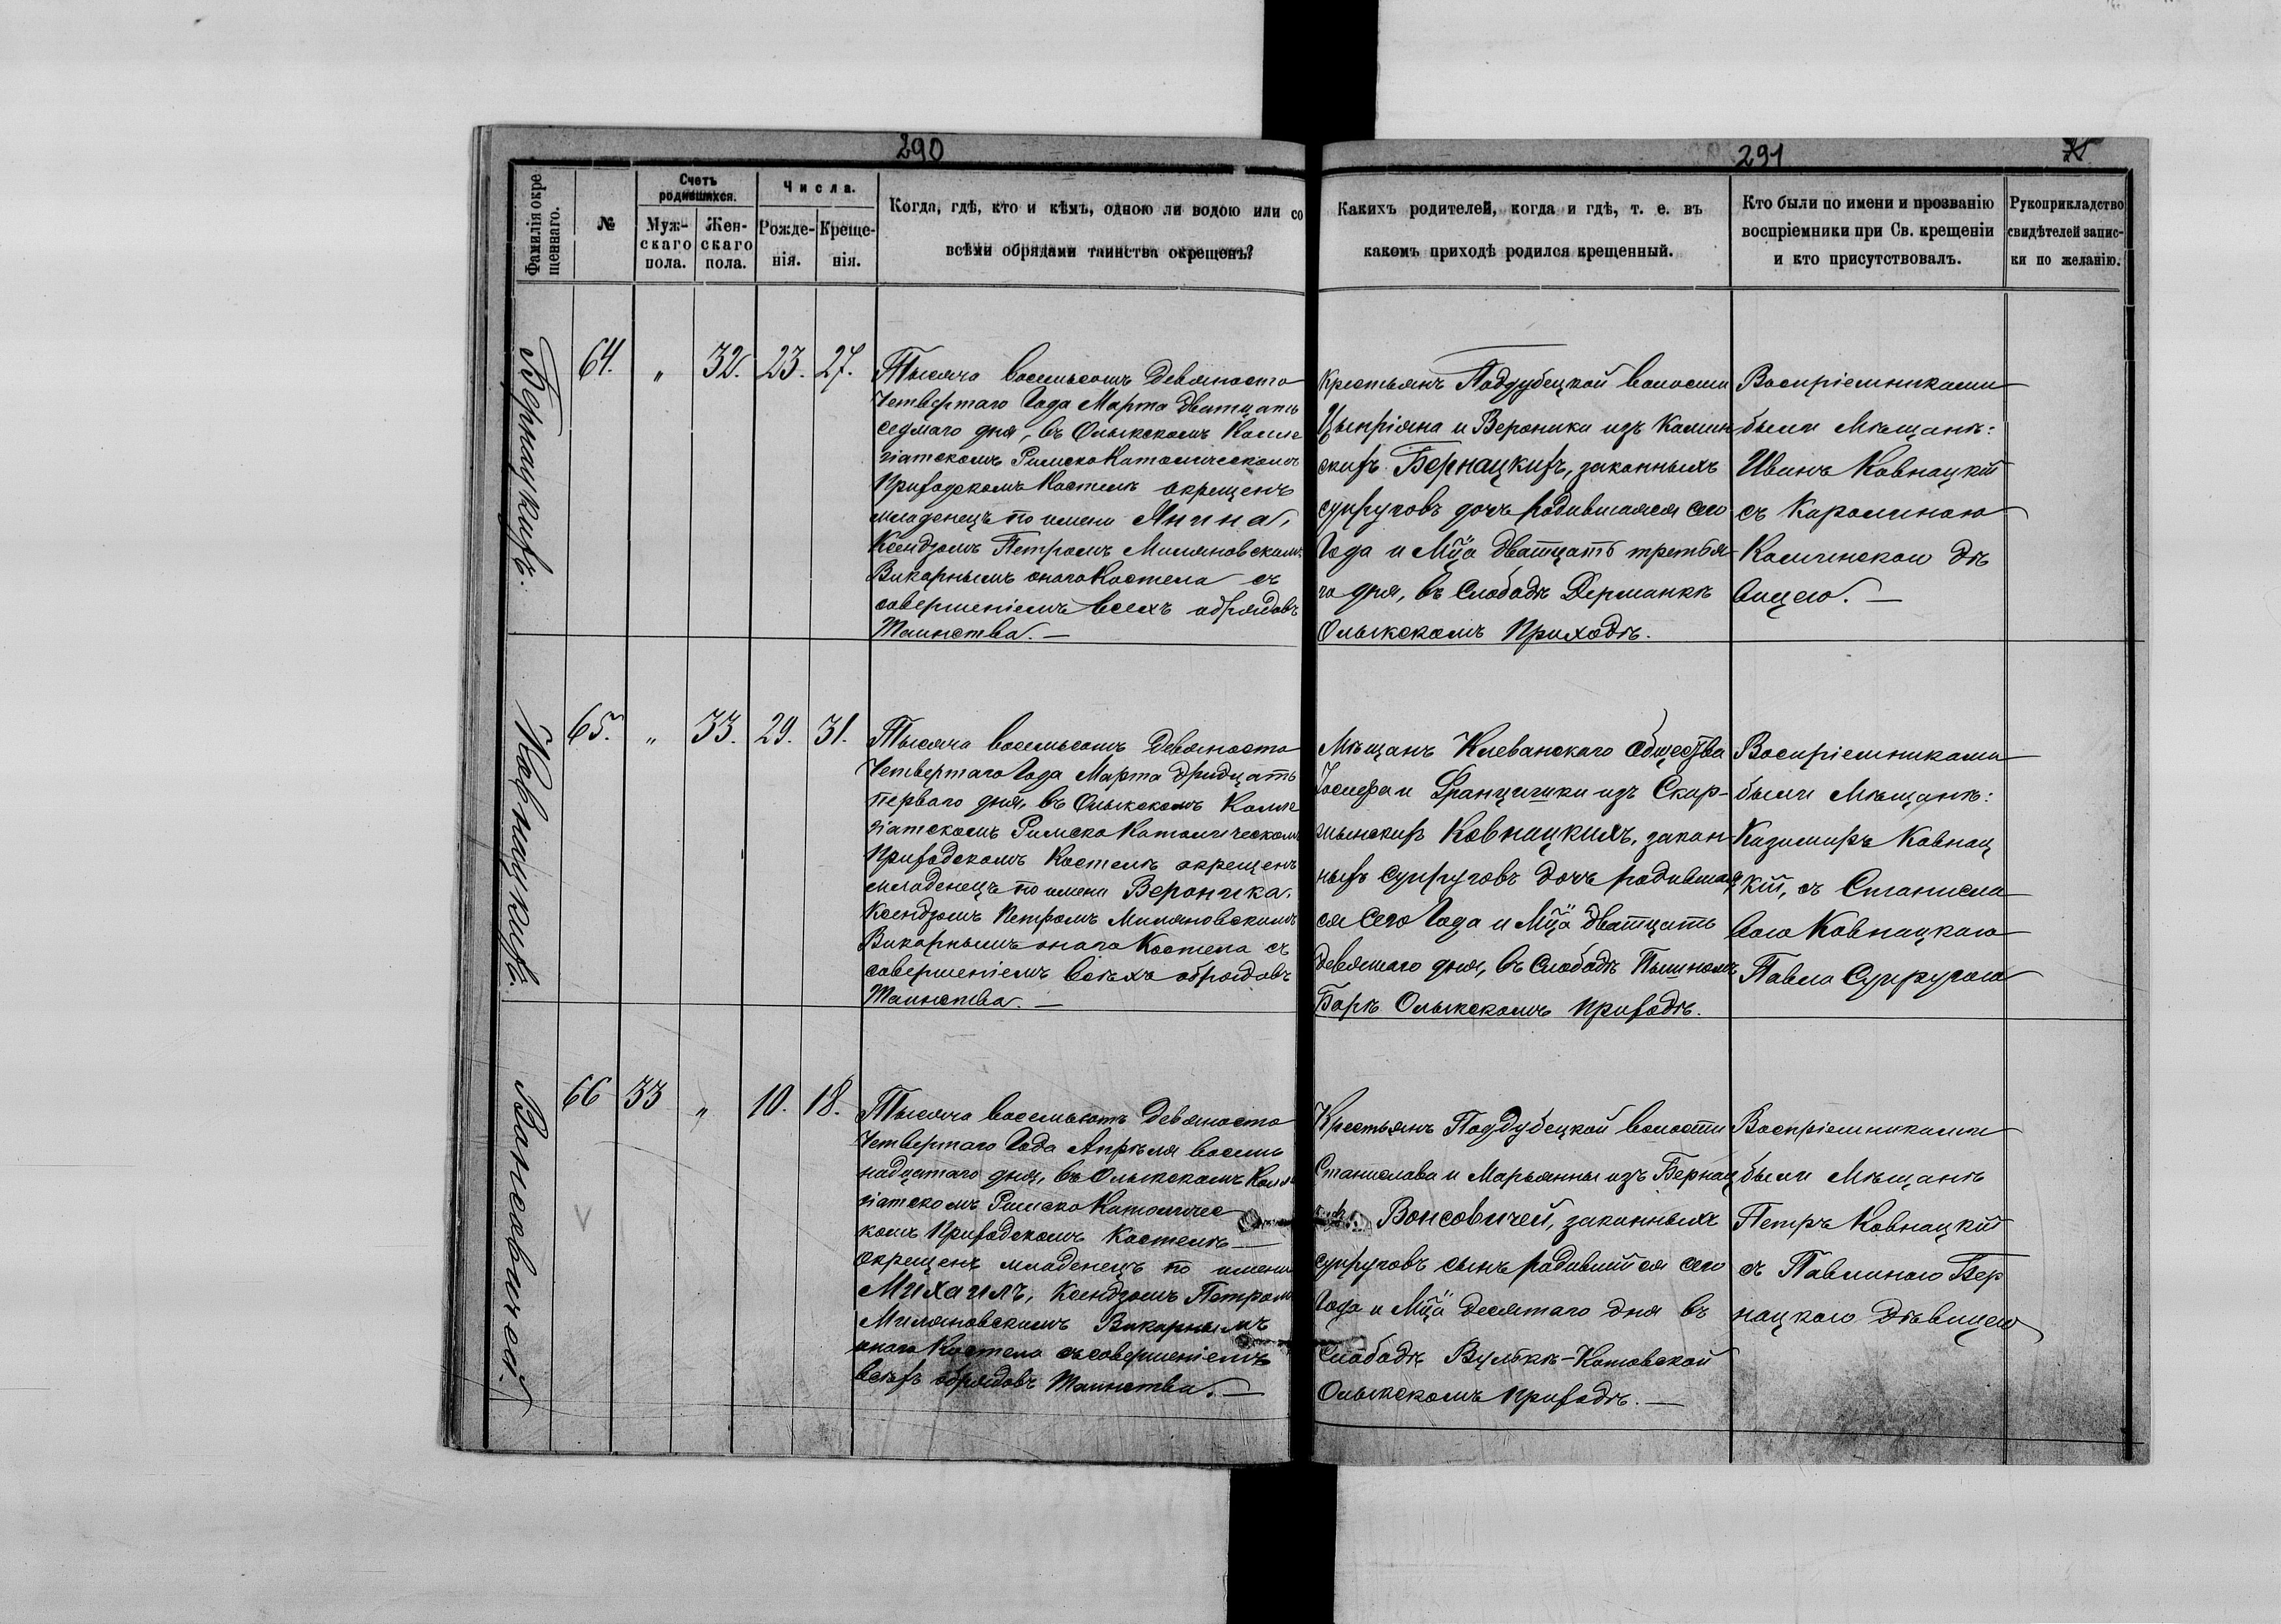 290
Фамилія окре
щеннаго.
№
Счетъ
родившихся.
Муж-
скаго
пола.
Жен-
скаго
пола.
Числа.
Рожде-
нія.
Креще-
нія.
Когда, гдѣ, кто и кѣмъ, одною ли водою или со
всѣми обрядами таинства окрещенъ?
291
Какихъ родителей, когда и гдѣ, т. е. въ
какомъ приходѣ родился крещенный.
Кто были по имени и прозванію
воспріемники при Св. крещеніи
и кто присутствовалъ.
Рукоприкладство
свидѣтелей запис-
ки по желанію.
Бернацкихъ.
64. " 32. 23. 27.
Тысяча восемьсотъ девяносто
Четвертаго Года Марта Двятцать
седмаго дня, въ Олыкскомъ Колле
гіатскомъ Римско Католическомъ
Приходскомъ Костелѣ окрещенъ
младенецъ по имени Янина,
Ксендзомъ Петромъ Миляновскимъ
Викарнымъ онаго Костела съ
совершеніемъ всехъ обрядовъ
Таинства. —
Крестьянъ Поддубецкой волости
Цыпріяна и Вероники изъ Камин
скихъ Бернацкихъ, законныхъ
супруговъ дочь родившаяся сего
Года и Мца Дватцать третья
го дня, въ Слободѣ Дерманкѣ
Олыкскомъ Приходѣ.
Воспріемниками
были Мѣщанѣ:
Иванъ Ковнацкій
съ Каролиною
Каминскою дѣ
вицею. —
Ковнацкихъ.
65. " 33. 29. 31.
Тысяча восемьсотъ Девяносто
Четвертаго Года Марта Тридцать
перваго дня, въ Олыкскомъ Колле
гіатскомъ Римско Католическомъ
Приходскомъ Костелѣ окрещенъ
младенецъ по имени Вероника,
Ксендзомъ Петромъ Миляновскимъ
Викарнымъ онаго Костела съ
совершеніемъ всѣхъ обрядовъ
Таинства. —
Мѣщанъ Клеванскаго Общества
Іосифа и Францишки изъ Скар-
жынскихъ Ковнацкихъ, закон
ныхъ супруговъ дочь родившая
ся Сего Года и Мца Дватцать
Девятаго дня, въ Слободѣ Пышномъ
Борѣ Олыкскомъ приходѣ.
Воспріемниками
были Мѣщанѣ:
Казимиръ Ковнац
кій, съ Станисла
вою Ковнацкою
Павла Супругою
Вонсовичей.
66 33 " 10. 18.
Тысяча восемьсотъ Девяносто
Четвертаго Года Апрѣля восемь
надцатаго дня, въ Олыкскомъ Колле
гіатскомъ Римско Католичес
комъ Приходскомъ Костелѣ —
окрещенъ младенецъ по имени
Михаилъ, Ксендзомъ Петромъ
Миляновскимъ Викарнымъ
онаго Костела съ совершеніемъ
всѣхъ обрядовъ Таинства. —
Крестьянъ Поддубецкой волости
Станислава и Марьянны изъ Бернац
Вонсовичей, законныхъ
супруговъ сынъ родившійся сего
Года и Мца Десятаго дня въ
Слободѣ Вулькѣ-Котовской
Олыкскомъ приходѣ. —
Воспріемниками
были Мѣщанѣ
Петръ Ковнацкій
съ Павлиною Бер
нацкою Дѣвицею